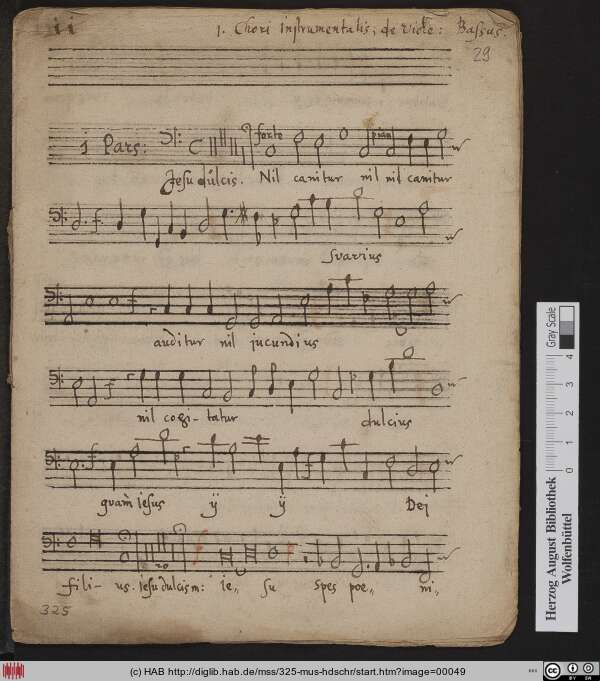 1. Chori instrumentalis, de Viole: Bassus.
29
1 Pars:
forte
pian
Jesu dulcis. Nil canitur nil nil canitur
svavius
auditur nil jucundius
nil cogi-tatur dulcius
quam iesus ij ij Dei
20
fili- us. iesu dulcis m: ie,, su spes poe,, ni,,
325
Herzog August Bibliothek
Wolfenbüttel
Gray Scale
0 1 2 3 4
(c) HAB http://diglib.hab.de/mss/325-mus-hdschr/start.htm?image=00049
CC BY SA